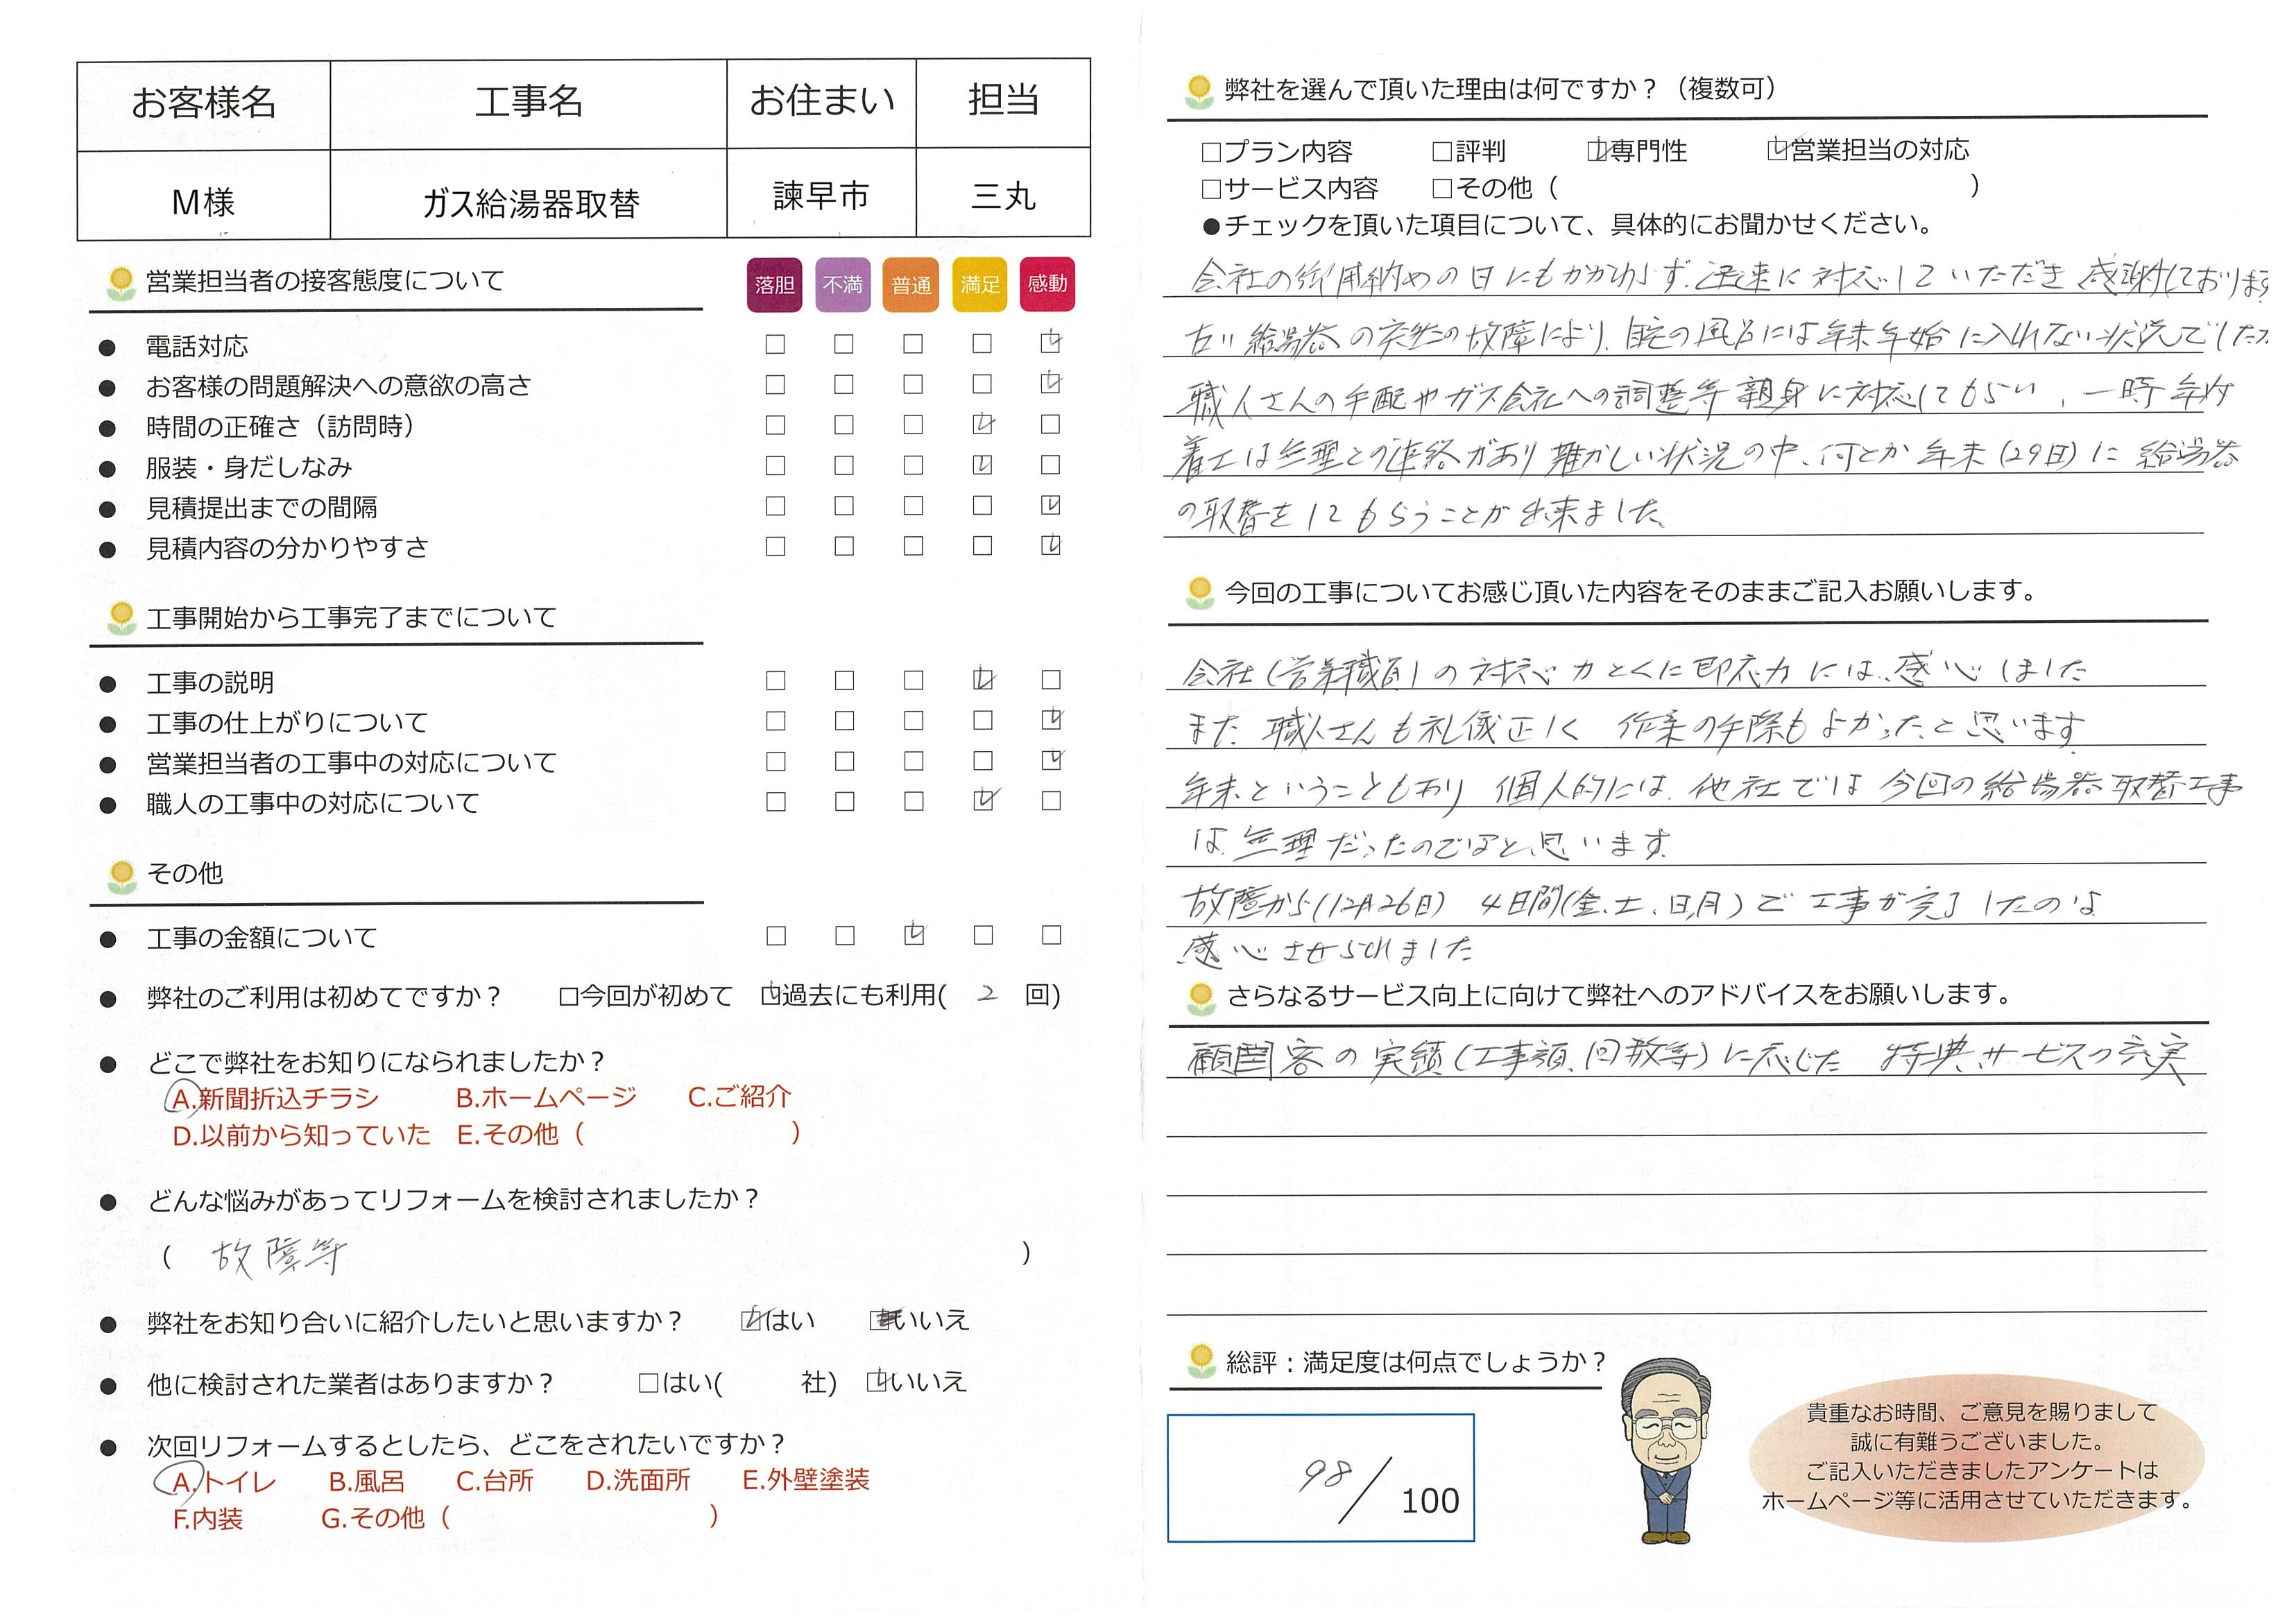 お客様名 工事名 お住まい 担当
M様 ガス給湯器取替 諫早市 三丸
営業担当者の接客態度について 落胆 不満 普通 満足 感動
● 電話対応 □ □ □ □ ☑
● お客様の問題解決への意欲の高さ □ □ □ □ ☑
● 時間の正確さ（訪問時） □ □ □ ☑ □
● 服装・身だしなみ □ □ □ ☑ □
● 見積提出までの間隔 □ □ □ □ ☑
● 見積内容の分かりやすさ □ □ □ □ ☑
工事開始から工事完了までについて
● 工事の説明 □ □ □ ☑ □
● 工事の仕上がりについて □ □ □ □ ☑
● 営業担当者の工事中の対応について □ □ □ □ ☑
● 職人の工事中の対応について □ □ □ ☑ □
その他
● 工事の金額について □ □ ☑ □ □
● 弊社のご利用は初めてですか？ □今回が初めて ☑過去にも利用( 2 回)
● どこで弊社をお知りになられましたか？
A.新聞折込チラシ B.ホームページ C.ご紹介
D.以前から知っていた E.その他（ ）
● どんな悩みがあってリフォームを検討されましたか？
( 故障等 )
● 弊社をお知り合いに紹介したいと思いますか？ ☑はい ■いいえ
● 他に検討された業者はありますか？ □はい( 社) ☑いいえ
● 次回リフォームするとしたら、どこをされたいですか？
A.トイレ B.風呂 C.台所 D.洗面所 E.外壁塗装
F.内装 G.その他（ ）
弊社を選んで頂いた理由は何ですか？（複数可）
□プラン内容 □評判 ☑専門性 ☑営業担当の対応
□サービス内容 □その他（ ）
●チェックを頂いた項目について、具体的にお聞かせください。
会社の御用納めの日にもかかわらず、迅速に対応していただき感謝しております
古い給湯器の突然の故障により、自宅の風呂には年末年始に入れない状況でしたが
職人さんの手配やガス会社への調整等親身に対応してもらい、一時年内
着工は無理との連絡があり難かしい状況の中、何とか年末(29日)に給湯器
の取替をしてもらうことが出来ました。
今回の工事についてお感じ頂いた内容をそのままご記入お願いします。
会社(営業職員)の対応力とくに即応力には、感心しました
また、職人さんも礼儀正しく 作業の手際もよかったと思います
年末ということもあり 個人的には、他社では今回の給湯器取替工事
は無理だったのではと思います
故障から(12月26日) 4日間(金、土、日、月)で工事が完了したのは
感心させられました
さらなるサービス向上に向けて弊社へのアドバイスをお願いします。
顧客の実績(工事額、回数等)に応じた 特典、サービスの充実
総評：満足度は何点でしょうか？
98/100
貴重なお時間、ご意見を賜りまして
誠に有難うございました。
ご記入いただきましたアンケートは
ホームページ等に活用させていただきます。